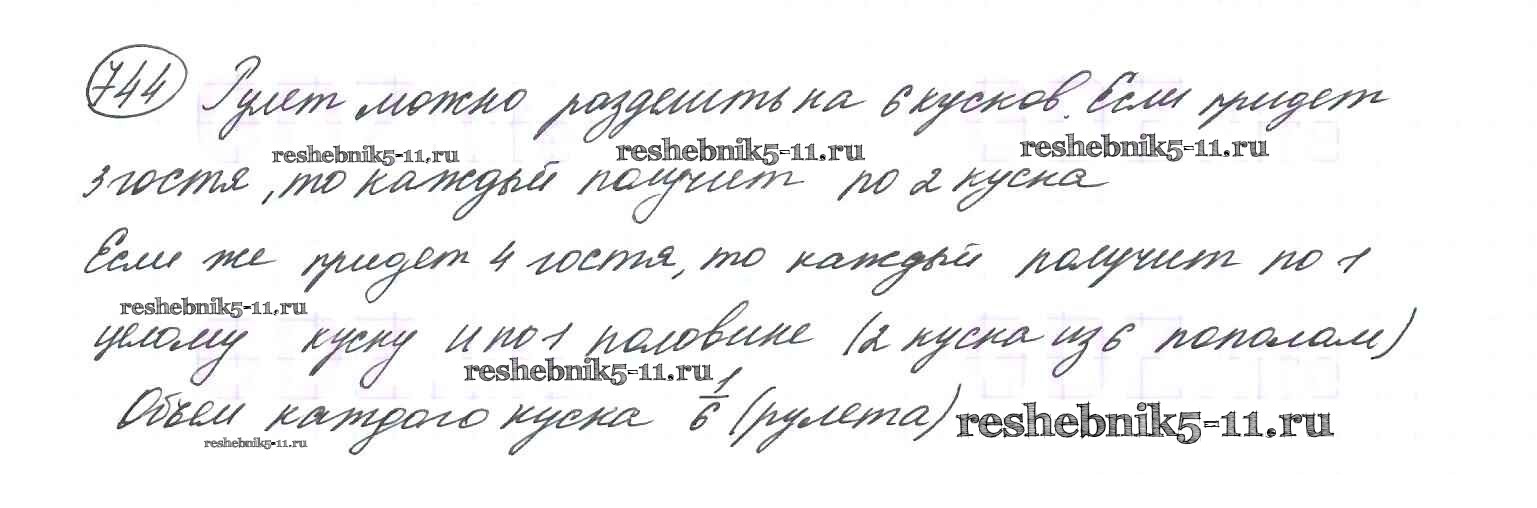 744 Рулет можно разделить на 6 кусков. Если придет
reshebnik5-11.ru reshebnik5-11.ru reshebnik5-11.ru
3 гостя, то каждый получит по 2 куска
Если же придет 4 гостя, то каждый получит по 1
reshebnik5-11.ru
целому куску и по 1 половине (2 куска из 6 пополам)
reshebnik5-11.ru
Объем каждого куска 1/6 (рулета) reshebnik5-11.ru
reshebnik5-11.ru